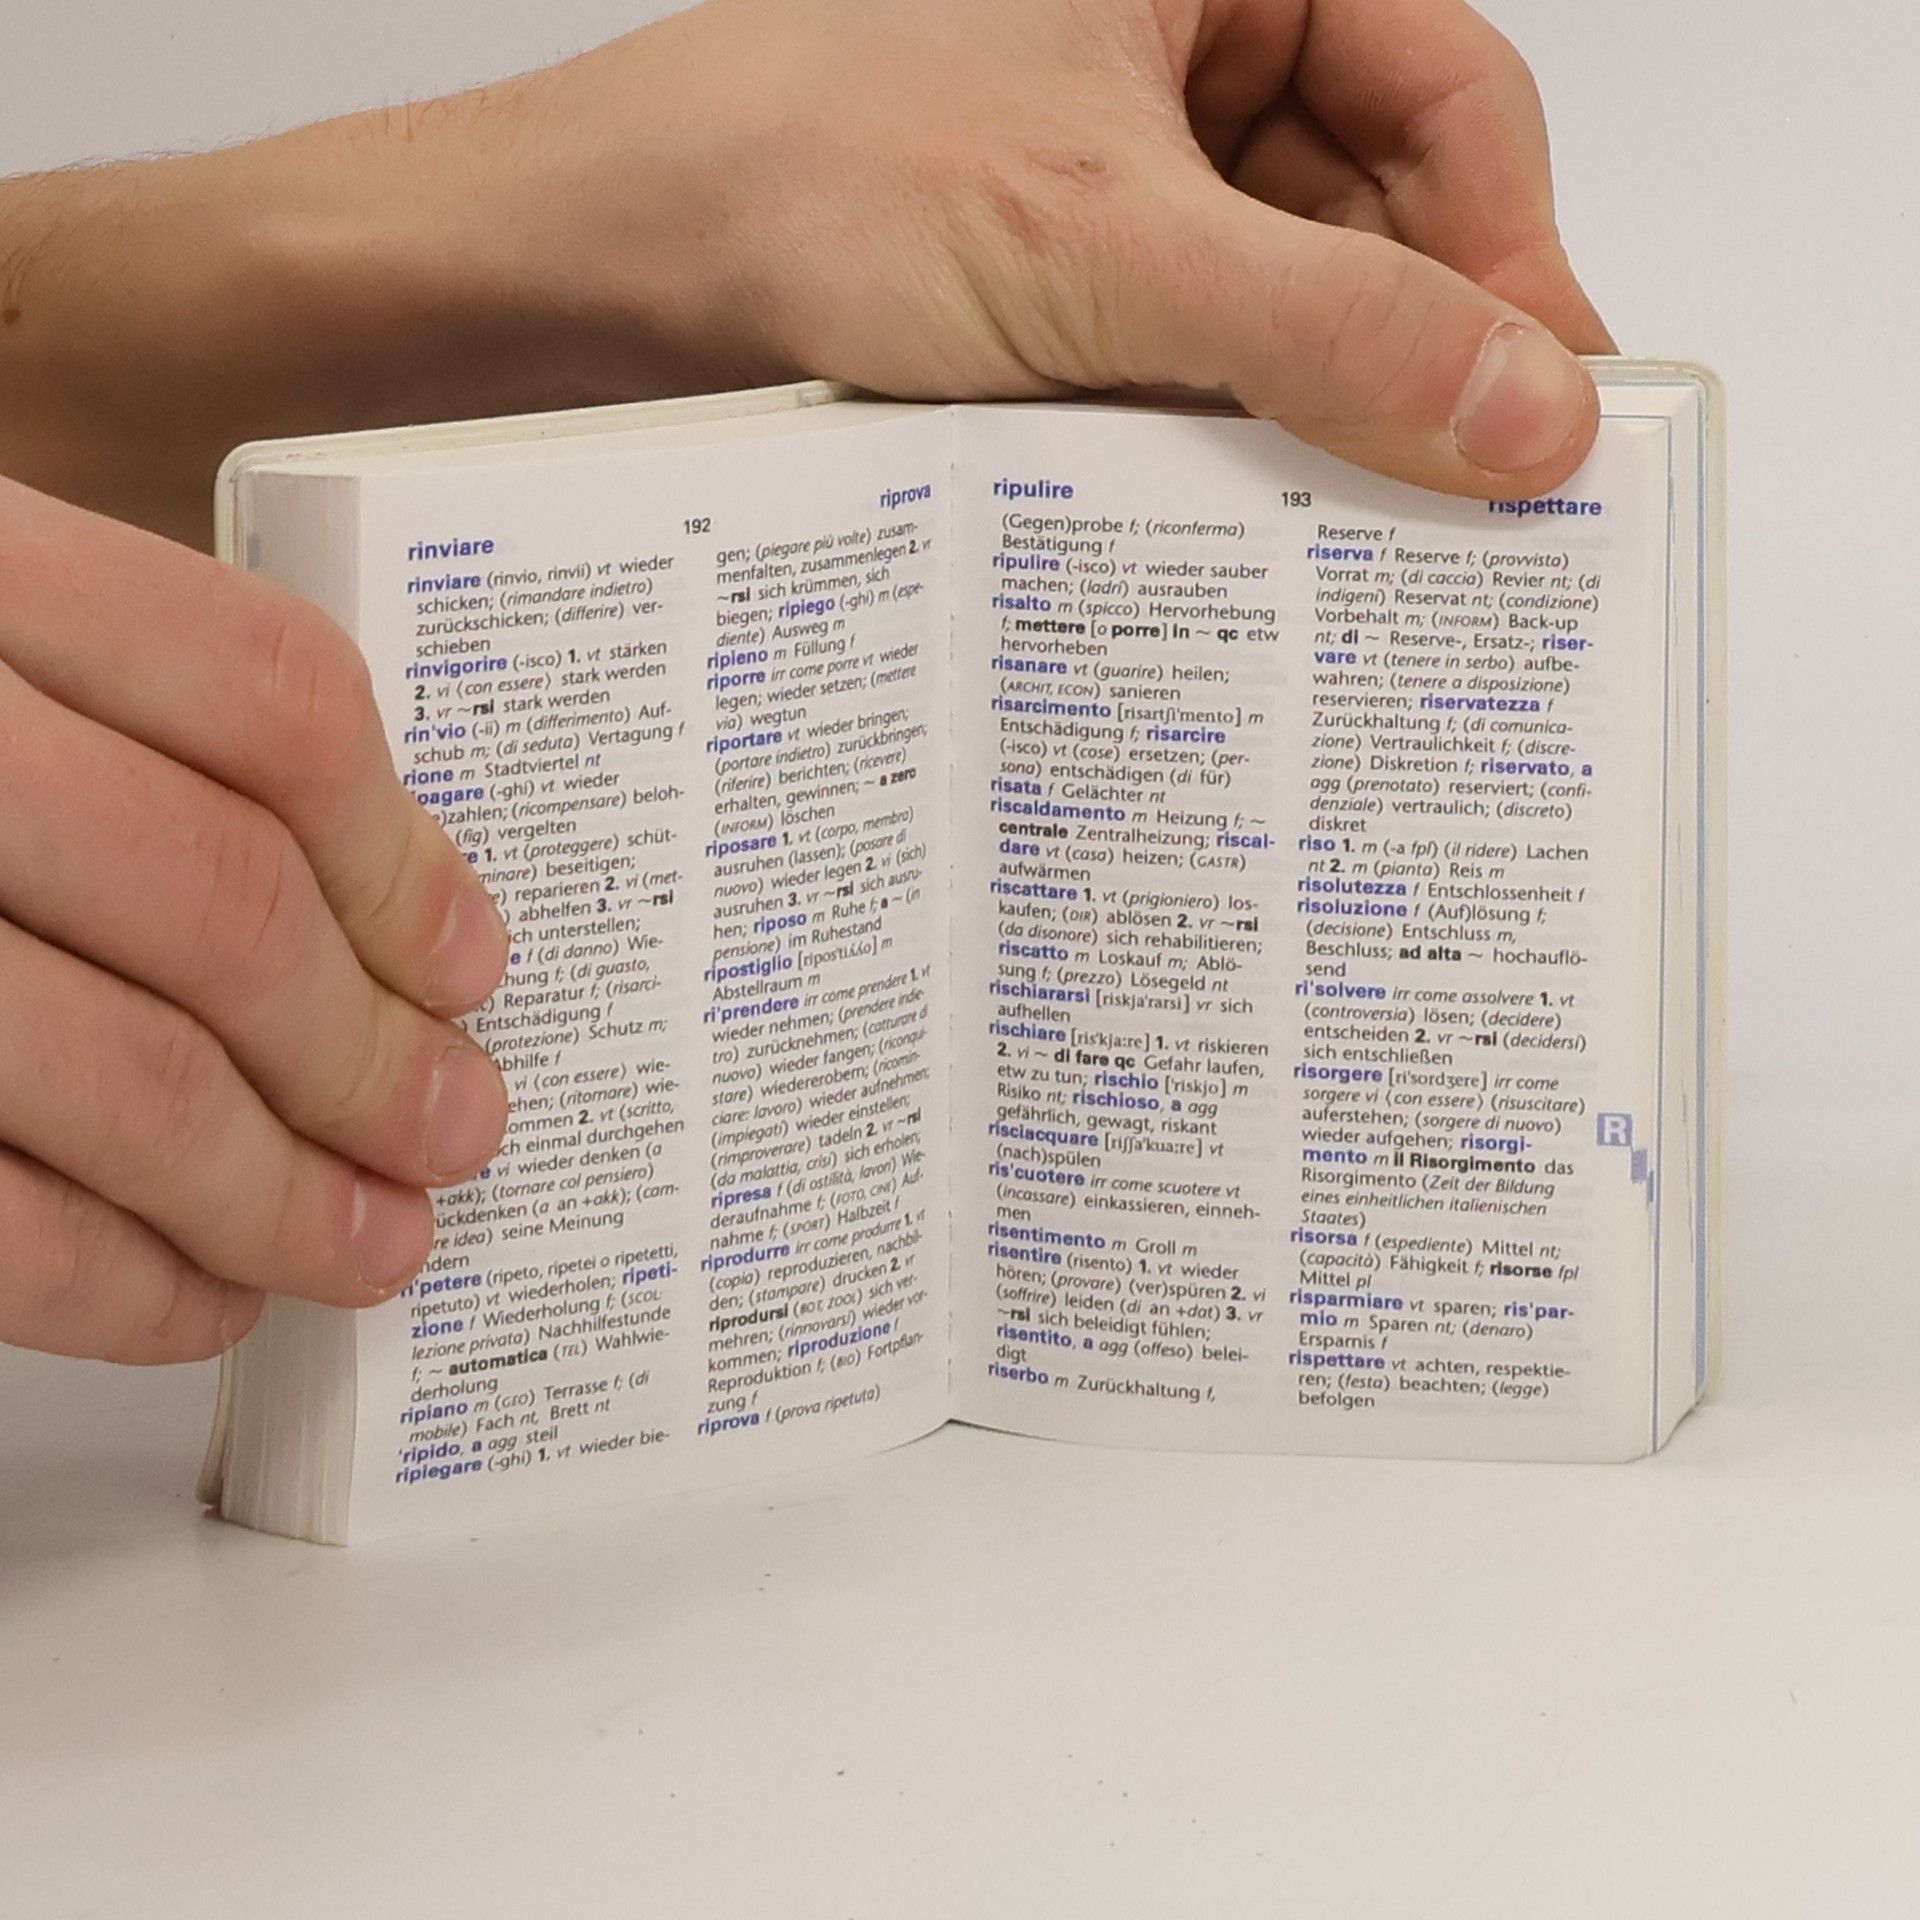 rinviare
192
riprova
rinviare (rinvio, rinvii) vt wieder
schicken; (rimandare indietro)
zurückschicken; (differire) ver-
schieben
rinvigorire (-isco) 1. vt stärken
2. vi (con essere) stark werden
3. vr ~rsi stark werden
rin'vio (-ii) m (differimento) Auf-
schub m; (di seduta) Vertagung f
rione m Stadtviertel nt
(-ghi) vt wieder
(ricompensare) beloh-
(fig) vergelten
1. vt (proteggere) schüt-
beseitigen;
reparieren 2. vi (met-
abhelfen 3. vr ~rsi
unterstellen;
f (di danno) Wie-
f; (di guasto,
Reparatur f; (risarci-
Entschädigung f
(protezione) Schutz m;
Abhilfe f
vi (con essere) wie-
(ritornare) wie-
2. vt (scritto,
einmal durchgehen
vi wieder denken (a
+akk); (tornare col pensiero)
(a an +akk); (cam-
idea) seine Meinung
ri'petere (ripeto, ripetei o ripetetti,
ripetuto) vt wiederholen; ripeti-
zione f Wiederholung f; (SCOL:
lezione privata) Nachhilfestunde
f; ~ automatica (TEL) Wahlwie-
derholung
ripiano m (GEO) Terrasse f; (di
mobile) Fach nt, Brett nt
'ripido, a agg steil
ripiegare (-ghi) 1. vt wieder bie-
gen; (piegare più volte) zusam-
menfalten, zusammenlegen 2. vr
~rsi sich krümmen, sich
biegen; ripiego (-ghi) m (espe-
diente) Ausweg m
ripieno m Füllung f
riporre irr come porre vt wieder
legen; wieder setzen; (mettere
via) wegtun
riportare vt wieder bringen;
(portare indietro) zurückbringen;
(riferire) berichten; (ricevere)
erhalten, gewinnen; ~ a zero
(INFORM) löschen
riposare 1. vt (corpo, membra)
ausruhen (lassen); (posare di
nuovo) wieder legen 2. vi (sich)
ausruhen 3. vr ~rsi sich ausru-
hen; riposo m Ruhe f; a ~ (in
pensione) im Ruhestand
ripostiglio [ripos'tiʎʎo] m
Abstellraum m
ri'prendere irr come prendere 1. vt
wieder nehmen; (prendere indie-
tro) zurücknehmen; (catturare di
nuovo) wieder fangen; (riconqui-
stare) wiedererobern; (ricomin-
ciare: lavoro) wieder aufnehmen;
(impiegati) wieder einstellen;
(rimproverare) tadeln 2. vr ~rsi
(da malattia, crisi) sich erholen;
ripresa f (di ostilità, lavori) Wie-
deraufnahme f; (FOTO, CINE) Auf-
nahme f; (SPORT) Halbzeit f
riprodurre irr come produrre 1. vt
(copia) reproduzieren, nachbil-
den; (stampare) drucken 2. vr
riprodursi (BOT, ZOOL) sich ver-
mehren; (rinnovarsi) wieder vor-
kommen; riproduzione f
Reproduktion f; (BIO) Fortpflan-
zung f
riprova f (prova ripetuta)
ripulire
193
rispettare
(Gegen)probe f; (riconferma)
Bestätigung f
ripulire (-isco) vt wieder sauber
machen; (ladri) ausrauben
risalto m (spicco) Hervorhebung
f; mettere [o porre] in ~ qc etw
hervorheben
risanare vt (guarire) heilen;
(ARCHIT, ECON) sanieren
risarcimento [risartʃi'mento] m
Entschädigung f; risarcire
(-isco) vt (cose) ersetzen; (per-
sona) entschädigen (di für)
risata f Gelächter nt
riscaldamento m Heizung f; ~
centrale Zentralheizung; riscal-
dare vt (casa) heizen; (GASTR)
aufwärmen
riscattare 1. vt (prigioniero) los-
kaufen; (DIR) ablösen 2. vr ~rsi
(da disonore) sich rehabilitieren;
riscatto m Loskauf m; Ablö-
sung f; (prezzo) Lösegeld nt
rischiararsi [riskja'rarsi] vr sich
aufhellen
rischiare [ris'kja:re] 1. vt riskieren
2. vi ~ di fare qc Gefahr laufen,
etw zu tun; rischio ['riskjo] m
Risiko nt; rischioso, a agg
gefährlich, gewagt, riskant
risciacquare [riʃʃa'kua:re] vt
(nach)spülen
ris'cuotere irr come scuotere vt
(incassare) einkassieren, einneh-
men
risentimento m Groll m
risentire (risento) 1. vt wieder
hören; (provare) (ver)spüren 2. vi
(soffrire) leiden (di an +dat) 3. vr
~rsi sich beleidigt fühlen;
risentito, a agg (offeso) belei-
digt
riserbo m Zurückhaltung f,
Reserve f
riserva f Reserve f; (provvista)
Vorrat m; (di caccia) Revier nt; (di
indigeni) Reservat nt; (condizione)
Vorbehalt m; (INFORM) Back-up
nt; di ~ Reserve-, Ersatz-; riser-
vare vt (tenere in serbo) aufbe-
wahren; (tenere a disposizione)
reservieren; riservatezza f
Zurückhaltung f; (di comunica-
zione) Vertraulichkeit f; (discre-
zione) Diskretion f; riservato, a
agg (prenotato) reserviert; (confi-
denziale) vertraulich; (discreto)
diskret
riso 1. m (-a fpl) (il ridere) Lachen
nt 2. m (pianta) Reis m
risolutezza f Entschlossenheit f
risoluzione f (Auf)lösung f;
(decisione) Entschluss m,
Beschluss; ad alta ~ hochauflö-
send
ri'solvere irr come assolvere 1. vt
(controversia) lösen; (decidere)
entscheiden 2. vr ~rsi (decidersi)
sich entschließen
risorgere [ri'sordʒere] irr come
sorgere vi (con essere) (risuscitare)
auferstehen; (sorgere di nuovo)
wieder aufgehen; risorgi-
mento m il Risorgimento das
Risorgimento (Zeit der Bildung
eines einheitlichen italienischen
Staates)
risorsa f (espediente) Mittel nt;
(capacità) Fähigkeit f; risorse fpl
Mittel pl
risparmiare vt sparen; ris'par-
mio m Sparen nt; (denaro)
Ersparnis f
rispettare vt achten, respektie-
ren; (festa) beachten; (legge)
befolgen
R